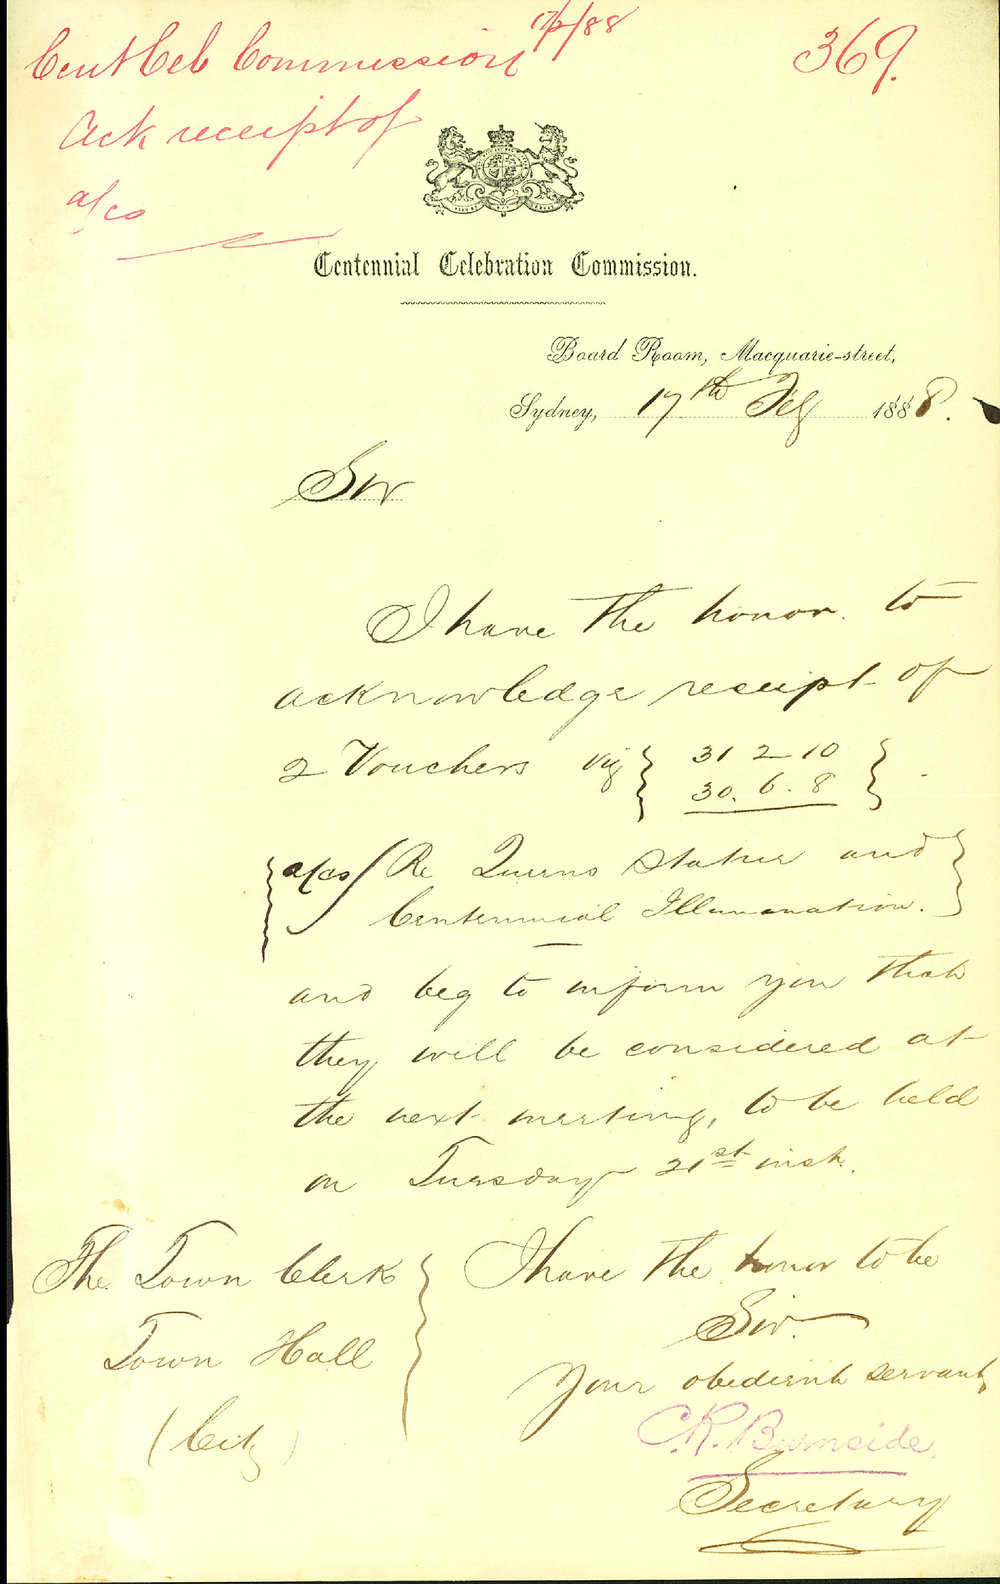 Cent Celb Commission 17/2/88
369.
Ack receipt of
a/cs
Centennial Celebration Commission.
Board Room, Macquarie-street,
Sydney, 17th Feb 1888.
Sir
I have the honor to
acknowledge receipt of
2 Vouchers viz { 31 2 10 }
30. 6. 8
a/cs Re Queens Statue and
Centennial Illumination.
and beg to inform you that
they will be considered at
the next meeting, to be held
on Tuesday 21st inst.
The Town Clerk
Town Hall
(City)
I have the honor to be
Sir.
Your obedient servant,
C.R. Burnside.
Secretary